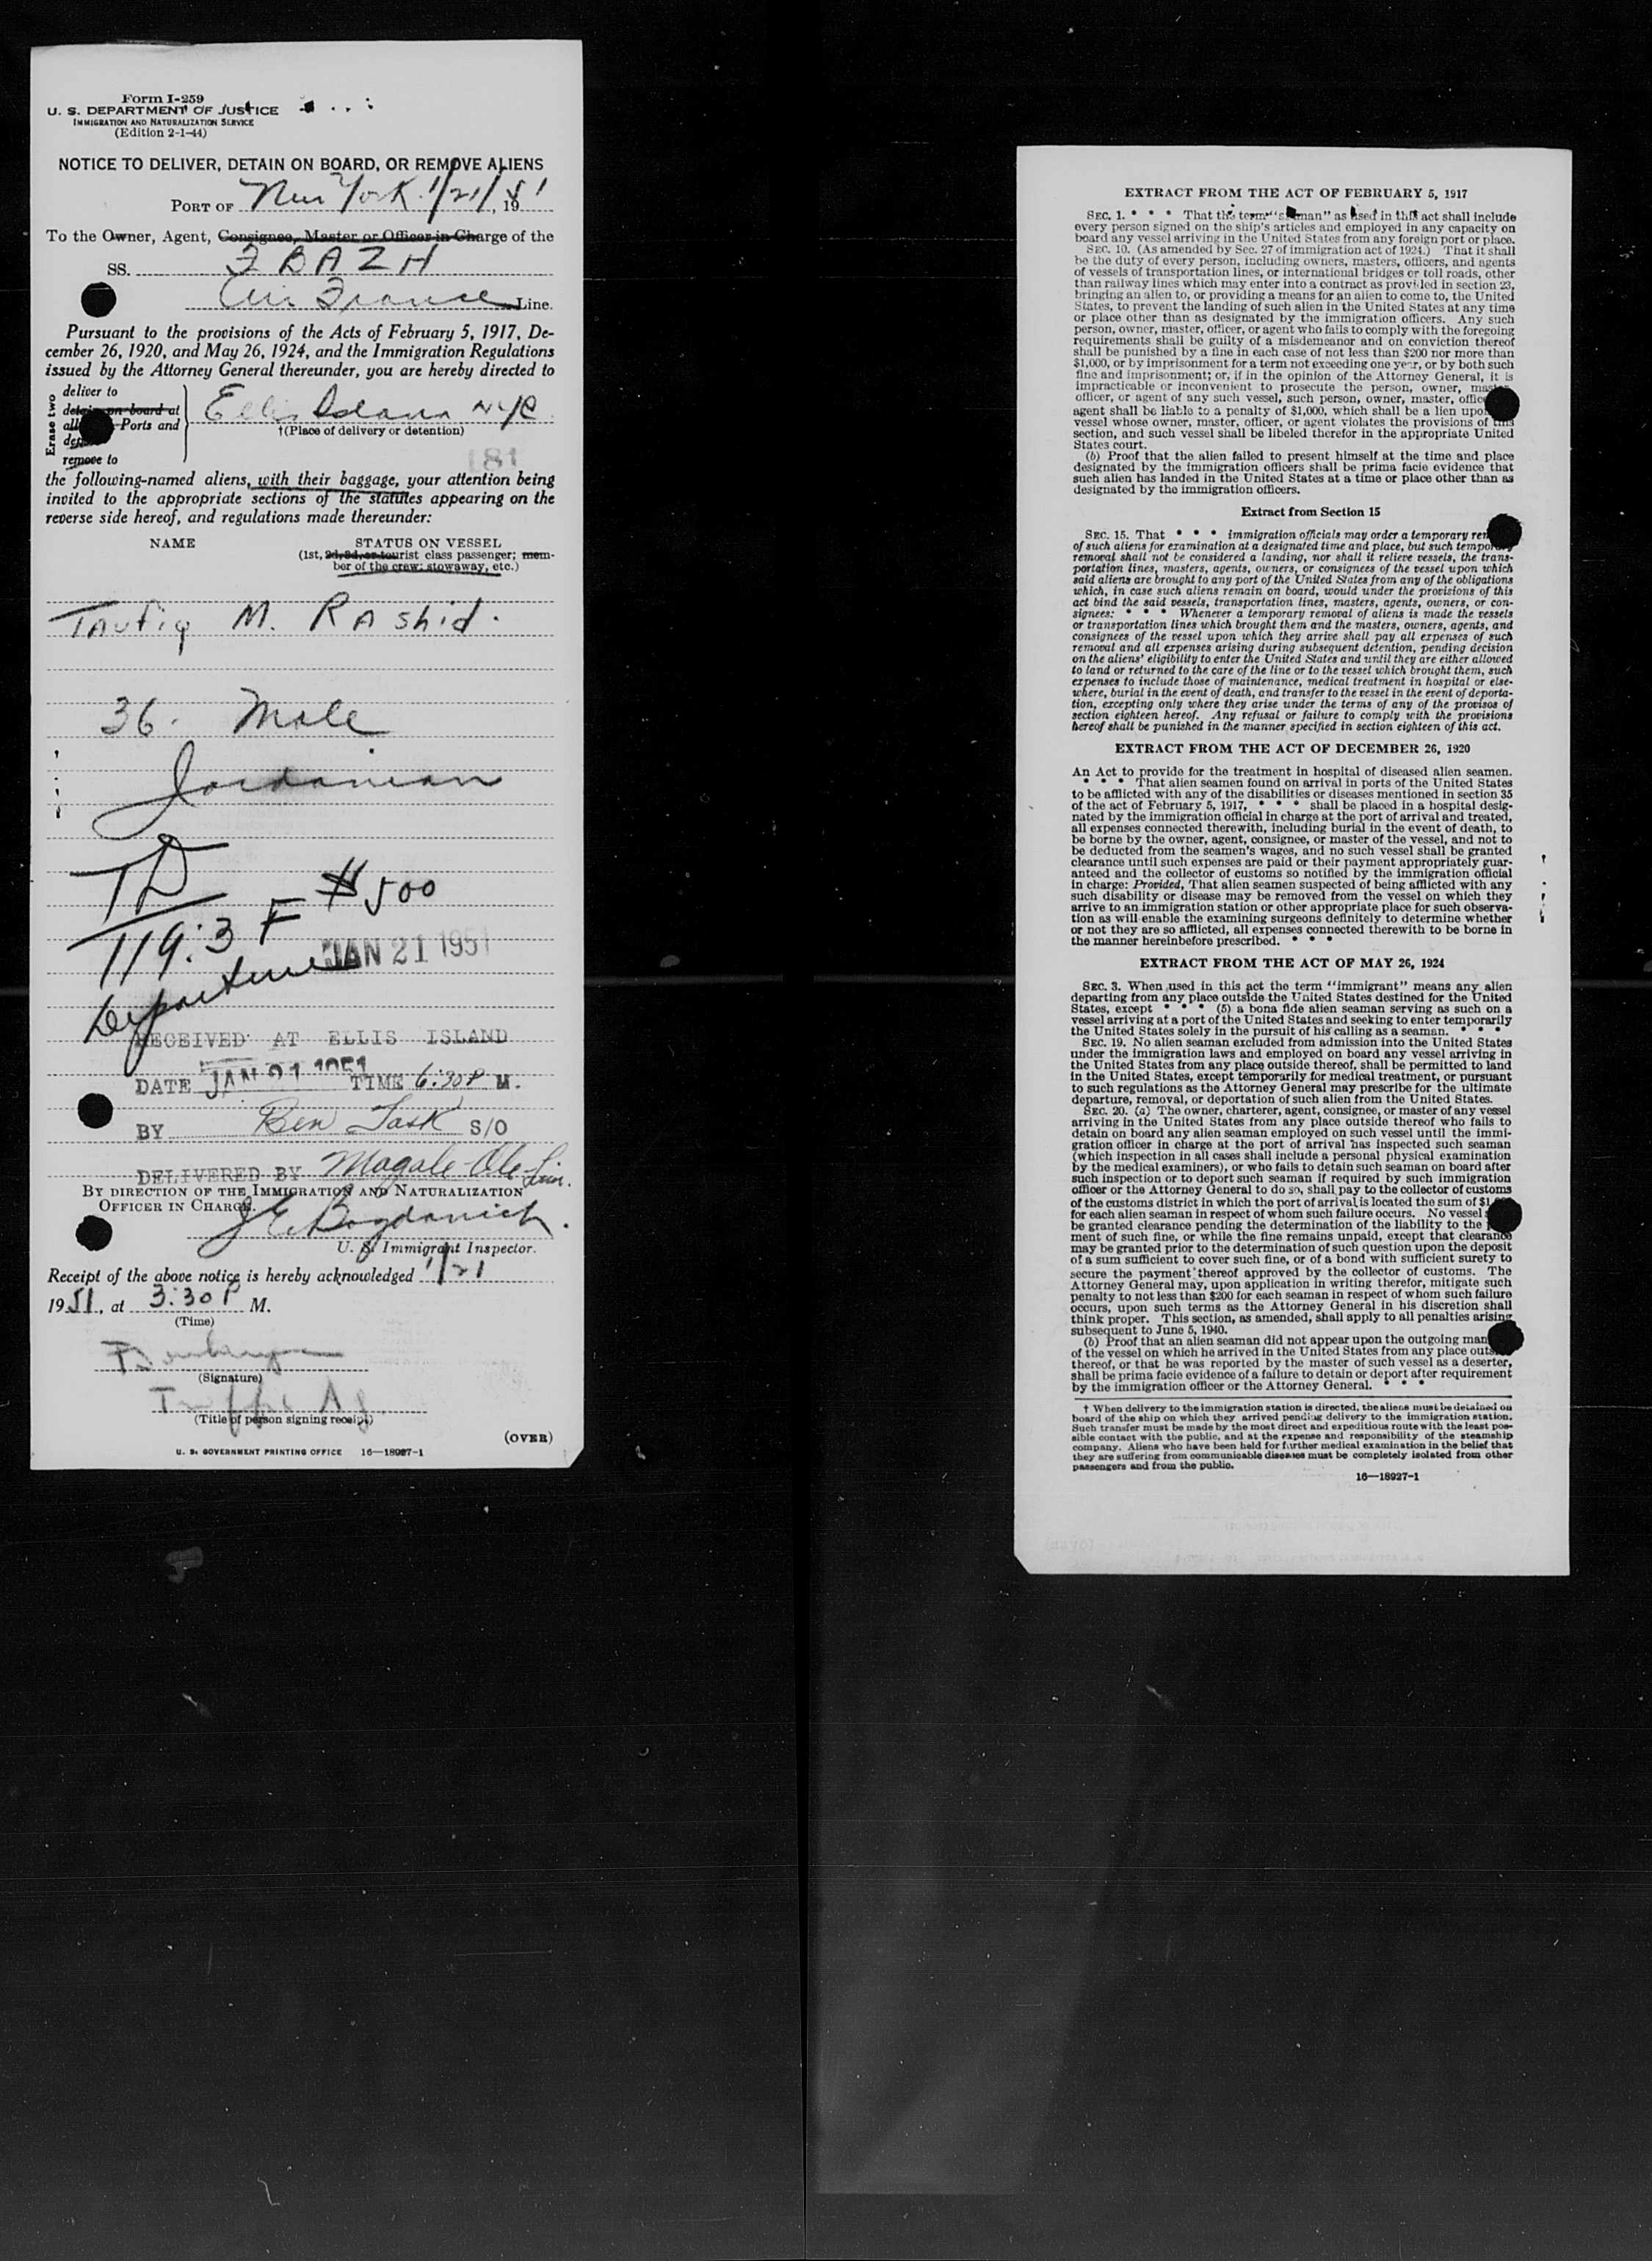 Form I-259
U. S. DEPARTMENT OF JUSTICE
IMMIGRATION AND NATURALIZATION SERVICE
(Edition 2-1-44)
NOTICE TO DELIVER, DETAIN ON BOARD, OR REMOVE ALIENS
PORT OF New York 1/21/, 1951
To the Owner, Agent, Consignee, Master or Officer in Charge of the
SS. FBAZH
Air France Line.
Pursuant to the provisions of the Acts of February 5, 1917, De-
cember 26, 1920, and May 26, 1924, and the Immigration Regulations
issued by the Attorney General thereunder, you are hereby directed to
Erase two
deliver to
detain on board at
all Ports and
remove to
Ellis Island NYC
†(Place of delivery or detention)
181
the following-named aliens, with their baggage, your attention being
invited to the appropriate sections of the statutes appearing on the
reverse side hereof, and regulations made thereunder:
NAME STATUS ON VESSEL
(1st, 2d, 3d, or tourist class passenger; mem-
ber of the crew; stowaway, etc.)
Taufiq M. Rashid.
36. Male
Jordanian
TD
119.3 F $500
Departure JAN 21 1951
RECEIVED AT ELLIS ISLAND
DATE JAN 21 1951 TIME 6:30 P M.
BY Ben Task S/O
DELIVERED BY
BY DIRECTION OF THE IMMIGRATION AND NATURALIZATION
OFFICER IN CHARGE.
J E Bogdanich.
U. S. Immigrant Inspector.
Receipt of the above notice is hereby acknowledged 1/21
1951, at 3:30 P M.
(Time)
(Signature)
(Title of person signing receipt)
(OVER)
U. S. GOVERNMENT PRINTING OFFICE 16—18927-1
EXTRACT FROM THE ACT OF FEBRUARY 5, 1917
SEC. 1. * * * That the term "seaman" as used in this act shall include
every person signed on the ship's articles and employed in any capacity on
board any vessel arriving in the United States from any foreign port or place.
SEC. 10. (As amended by Sec. 27 of immigration act of 1924.) That it shall
be the duty of every person, including owners, masters, officers, and agents
of vessels of transportation lines, or international bridges or toll roads, other
than railway lines which may enter into a contract as provided in section 23,
bringing an alien to, or providing a means for an alien to come to, the United
States, to prevent the landing of such alien in the United States at any time
or place other than as designated by the immigration officers. Any such
person, owner, master, officer, or agent who fails to comply with the foregoing
requirements shall be guilty of a misdemeanor and on conviction thereof
shall be punished by a fine in each case of not less than $200 nor more than
$1,000, or by imprisonment for a term not exceeding one year, or by both such
fine and imprisonment; or, if in the opinion of the Attorney General, it is
impracticable or inconvenient to prosecute the person, owner, master,
officer, or agent of any such vessel, such person, owner, master, officer
agent shall be liable to a penalty of $1,000, which shall be a lien upon
vessel whose owner, master, officer, or agent violates the provisions of this
section, and such vessel shall be libeled therefor in the appropriate United
States court.
(b) Proof that the alien failed to present himself at the time and place
designated by the immigration officers shall be prima facie evidence that
such alien has landed in the United States at a time or place other than as
designated by the immigration officers.
Extract from Section 15
SEC. 15. That * * * immigration officials may order a temporary removal
of such aliens for examination at a designated time and place, but such temporary
removal shall not be considered a landing, nor shall it relieve vessels, the trans-
portation lines, masters, agents, owners, or consignees of the vessel upon which
said aliens are brought to any port of the United States from any of the obligations
which, in case such aliens remain on board, would under the provisions of this
act bind the said vessels, transportation lines, masters, agents, owners, or con-
signees: * * * Whenever a temporary removal of aliens is made the vessels
or transportation lines which brought them and the masters, owners, agents, and
consignees of the vessel upon which they arrive shall pay all expenses of such
removal and all expenses arising during subsequent detention, pending decision
on the aliens' eligibility to enter the United States and until they are either allowed
to land or returned to the care of the line or to the vessel which brought them, such
expenses to include those of maintenance, medical treatment in hospital or else-
where, burial in the event of death, and transfer to the vessel in the event of deporta-
tion, excepting only where they arise under the terms of any of the provisos of
section eighteen hereof. Any refusal or failure to comply with the provisions
hereof shall be punished in the manner specified in section eighteen of this act.
EXTRACT FROM THE ACT OF DECEMBER 26, 1920
An Act to provide for the treatment in hospital of diseased alien seamen.
* * * That alien seamen found on arrival in ports of the United States
to be afflicted with any of the disabilities or diseases mentioned in section 35
of the act of February 5, 1917, * * * shall be placed in a hospital desig-
nated by the immigration official in charge at the port of arrival and treated,
all expenses connected therewith, including burial in the event of death, to
be borne by the owner, agent, consignee, or master of the vessel, and not to
be deducted from the seamen's wages, and no such vessel shall be granted
clearance until such expenses are paid or their payment appropriately guar-
anteed and the collector of customs so notified by the immigration official
in charge: Provided, That alien seamen suspected of being afflicted with any
such disability or disease may be removed from the vessel on which they
arrive to an immigration station or other appropriate place for such observa-
tion as will enable the examining surgeons definitely to determine whether
or not they are so afflicted, all expenses connected therewith to be borne in
the manner hereinbefore prescribed. * * *
EXTRACT FROM THE ACT OF MAY 26, 1924
SEC. 3. When used in this act the term "immigrant" means any alien
departing from any place outside the United States destined for the United
States, except * * * (5) a bona fide alien seaman serving as such on a
vessel arriving at a port of the United States and seeking to enter temporarily
the United States solely in the pursuit of his calling as a seaman. * * *
SEC. 19. No alien seaman excluded from admission into the United States
under the immigration laws and employed on board any vessel arriving in
the United States from any place outside thereof, shall be permitted to land
in the United States, except temporarily for medical treatment, or pursuant
to such regulations as the Attorney General may prescribe for the ultimate
departure, removal, or deportation of such alien from the United States.
SEC. 20. (a) The owner, charterer, agent, consignee, or master of any vessel
arriving in the United States from any place outside thereof who fails to
detain on board any alien seaman employed on such vessel until the immi-
gration officer in charge at the port of arrival has inspected such seaman
(which inspection in all cases shall include a personal physical examination
by the medical examiners), or who fails to detain such seaman on board after
such inspection or to deport such seaman if required by such immigration
officer or the Attorney General to do so, shall pay to the collector of customs
of the customs district in which the port of arrival is located the sum of $1,000
for each alien seaman in respect of whom such failure occurs. No vessel
be granted clearance pending the determination of the liability to the
ment of such fine, or while the fine remains unpaid, except that clearance
may be granted prior to the determination of such question upon the deposit
of a sum sufficient to cover such fine, or of a bond with sufficient surety to
secure the payment thereof approved by the collector of customs. The
Attorney General may, upon application in writing therefor, mitigate such
penalty to not less than $200 for each seaman in respect of whom such failure
occurs, upon such terms as the Attorney General in his discretion shall
think proper. This section, as amended, shall apply to all penalties arising
subsequent to June 5, 1940.
(b) Proof that an alien seaman did not appear upon the outgoing man
of the vessel on which he arrived in the United States from any place outside
thereof, or that he was reported by the master of such vessel as a deserter,
shall be prima facie evidence of a failure to detain or deport after requirement
by the immigration officer or the Attorney General. * * *
† When delivery to the immigration station is directed, the aliens must be detained on
board of the ship on which they arrived pending delivery to the immigration station.
Such transfer must be made by the most direct and expeditious route with the least pos-
sible contact with the public, and at the expense and responsibility of the steamship
company. Aliens who have been held for further medical examination in the belief that
they are suffering from communicable diseases must be completely isolated from other
passengers and from the public.
16—18927-1